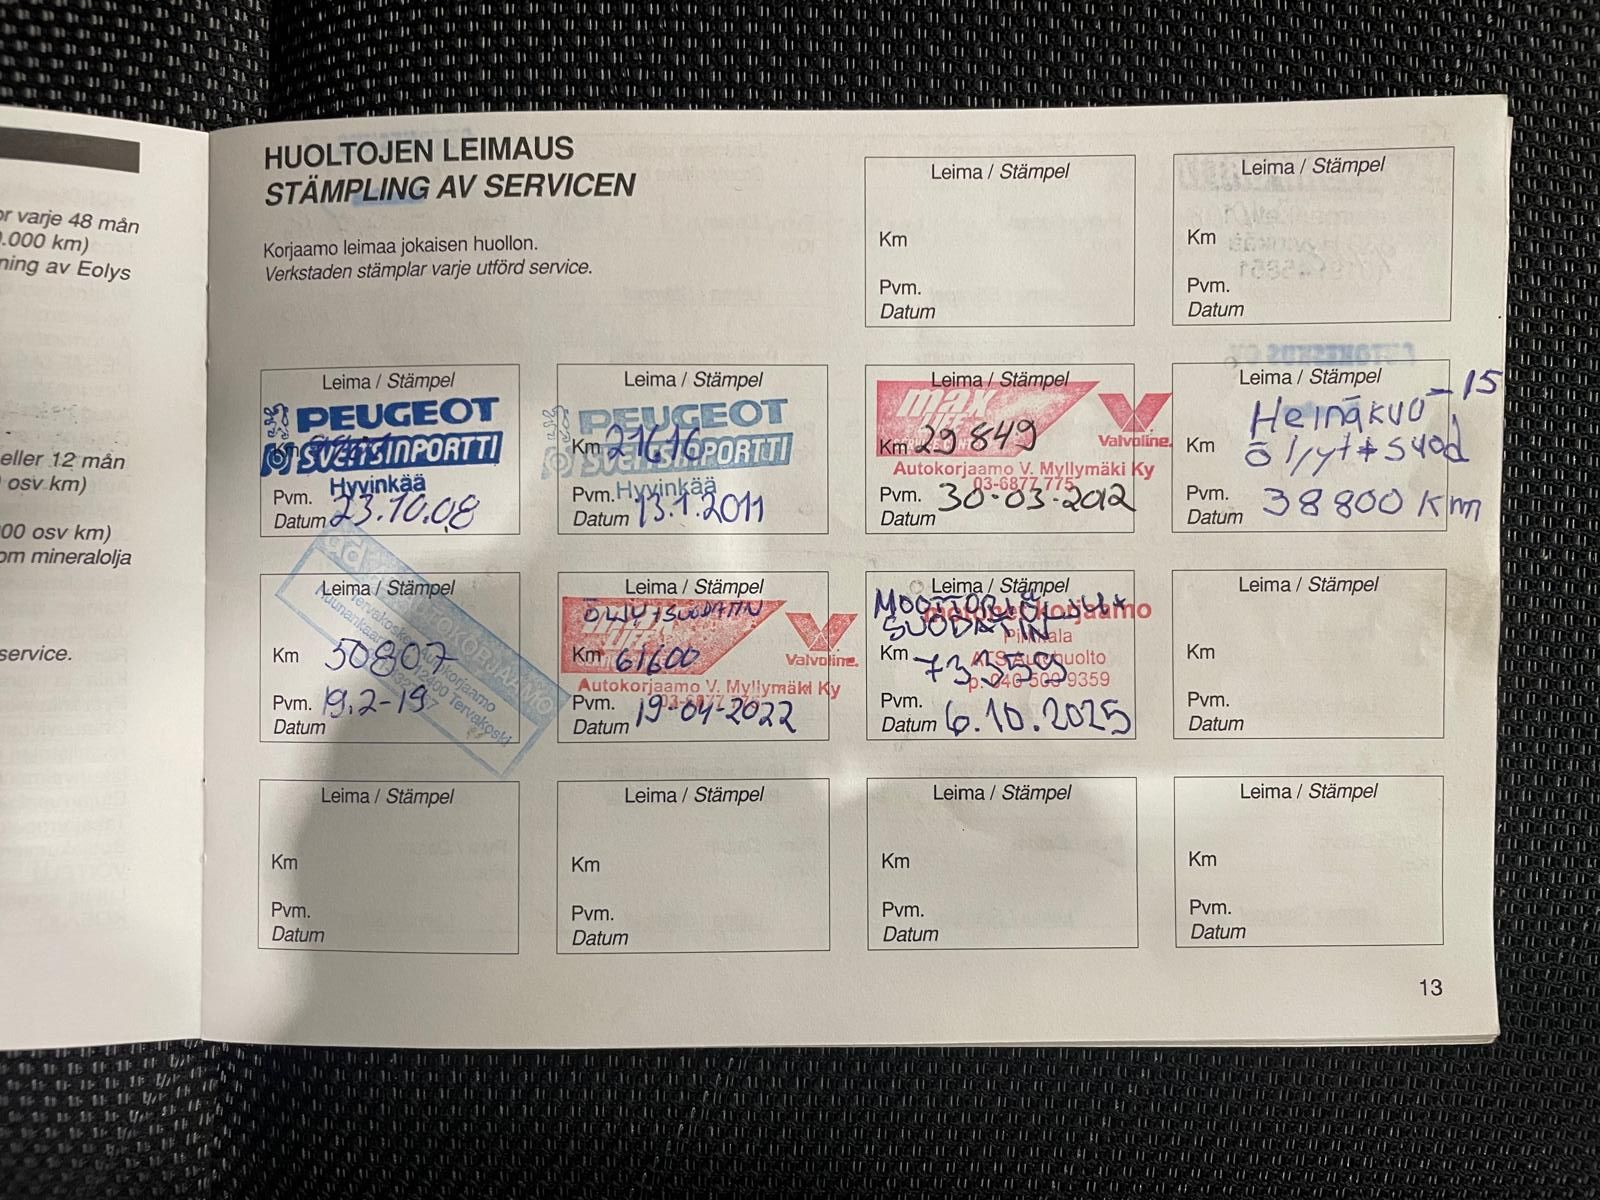 or varje 48 mån
.000 km)
ning av Eolys
eller 12 mån
osv km)
00 osv km)
om mineralolja
service.
HUOLTOJEN LEIMAUS
STÄMPLING AV SERVICEN
Korjaamo leimaa jokaisen huollon.
Verkstaden stämplar varje utförd service.
Leima / Stämpel
Km
Pvm.
Datum
Leima / Stämpel
Km
Pvm.
Datum
Leima / Stämpel
PEUGEOT
Km
SVEITSINPORTTI
Hyvinkää
Pvm.
Datum 23.10.08
Leima / Stämpel
PEUGEOT
Km 21616
SVEITSINPORTTI
Hyvinkää
Pvm.
Datum 13.1.2011
Leima / Stämpel
max
LIFE
Valvoline.
Km 29 849
Autokorjaamo V. Myllymäki Ky
03-6877 775
Pvm. 30-03-2012
Datum
Leima / Stämpel
Heinäkuu -15
Km öljyt + suod
Pvm. 38800 Km
Datum
Leima / Stämpel
ad AUTOKORJAAMO
Tervakosken Autokorjaamo
12400 Tervakoski
Km 50807
Pvm. 19.2-19
Datum
Leima / Stämpel
ÖLJY+SUODATIN
max
LIFE
Valvoline.
Km 61600
Autokorjaamo V. Myllymäki Ky
03-6877 775
Pvm. 19-04-2022
Datum
Leima / Stämpel
MOOTTORIÖLJY
SUODATIN
Pirkkala
Km 73359
Autohuolto
p. 040 509 9359
Pvm.
Datum 6.10.2025
Leima / Stämpel
Km
Pvm.
Datum
Leima / Stämpel
Km
Pvm.
Datum
Leima / Stämpel
Km
Pvm.
Datum
Leima / Stämpel
Km
Pvm.
Datum
Leima / Stämpel
Km
Pvm.
Datum
13